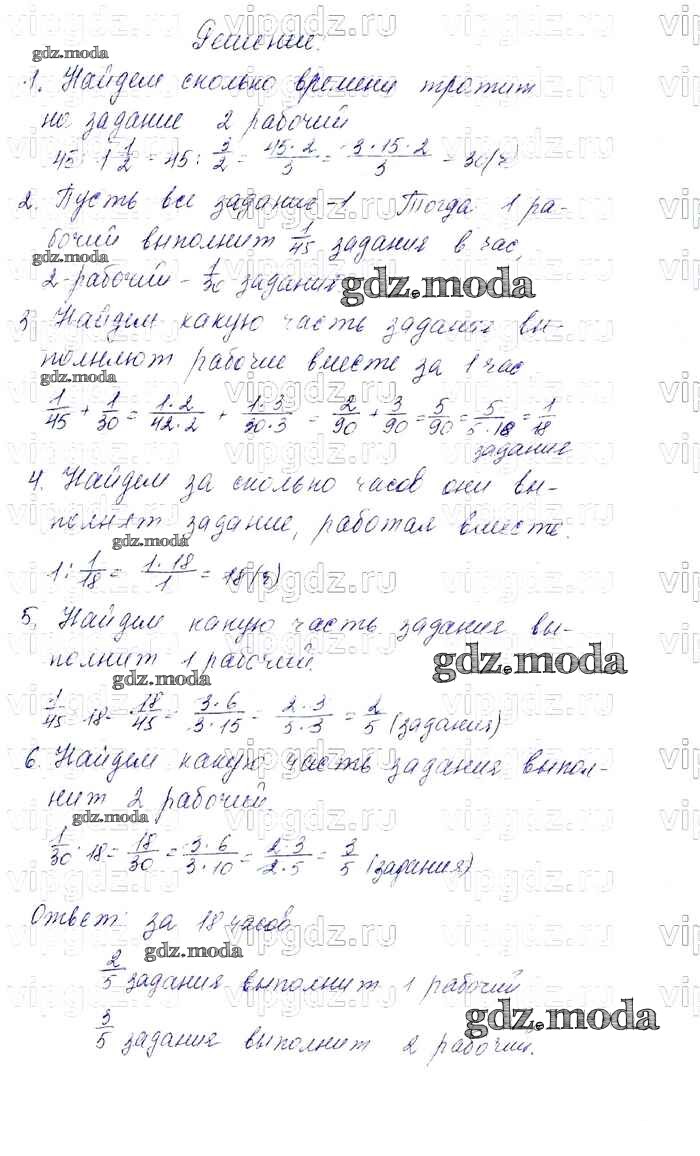 Решение.
1. Найдем сколько времени тратит
на задание 2 рабочий
45 : 1 1/2 = 45 : 3/2 = 45·2/3 = 3·15·2/3 = 30(ч)
2. Пусть все задание - 1 Тогда 1 ра-
бочий выполнит 1/45 задания в час,
2-рабочий - 1/30 задания
3 Найдем какую часть задания вы-
полняют рабочие вместе за 1 час
1/45 + 1/30 = 1·2/42·2 + 1·3/30·3 = 2/90 + 3/90 = 5/90 = 5/5·18 = 1/18
задания
4. Найдем за сколько часов они вы-
полнят задание, работая вместе.
1 : 1/18 = 1·18/1 = 18(ч)
5. Найдем какую часть задания вы-
полнит 1 рабочий.
1/45 · 18 = 18/45 = 3·6/3·15 = 2·3/5·3 = 2/5 (задания)
6. Найдем какую часть задания выпол-
нит 2 рабочий.
1/30 · 18 = 18/30 = 3·6/3·10 = 2·3/2·5 = 3/5 (задания)
Ответ: за 18 часов
2/5 задания выполнит 1 рабочий
3/5 задания выполнит 2 рабочий.
gdz.moda
vipgdz.ru